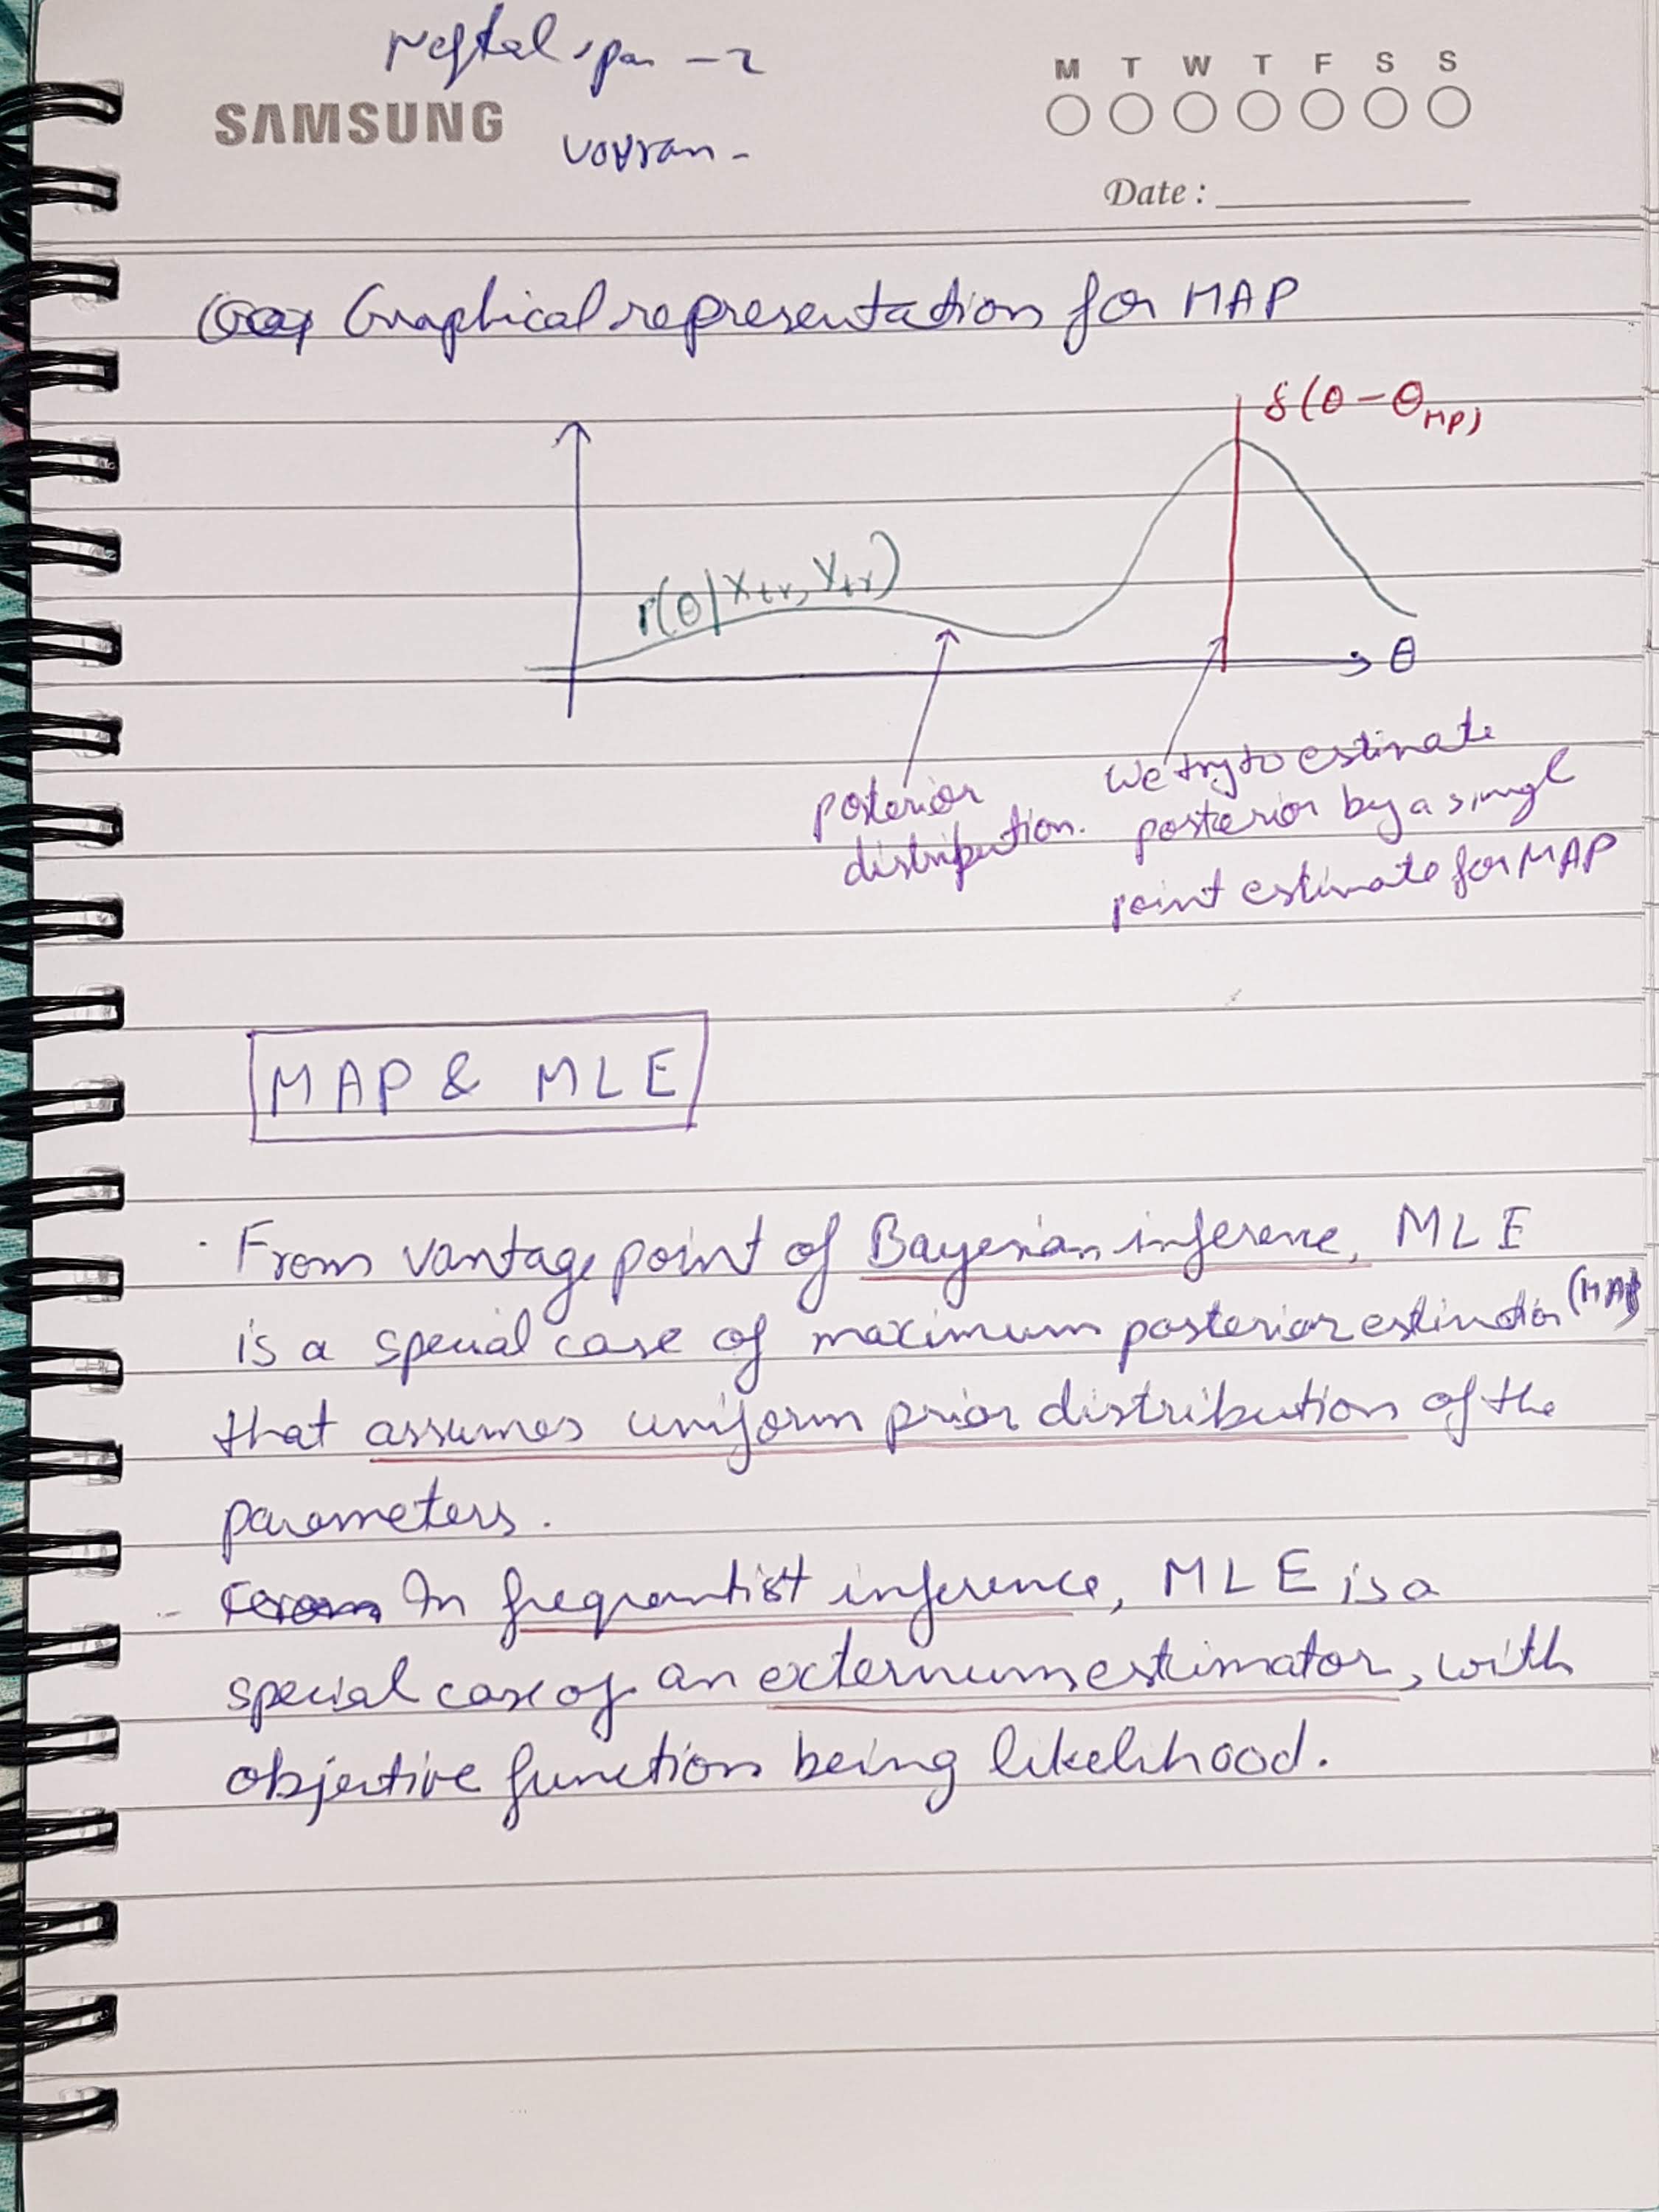 M T W T F S S
SAMSUNG
Date :
Graphical representation for MAP
δ(θ - θMP)
p(θ|Xtr, Ytr)
θ
posterior
distribution.
We try to estimate
posterior by a singl
point estimate for MAP
MAP & MLE
· From vantage point of Bayesian inference, MLE
is a special case of maximum posterior estimation (MAP)
that assumes uniform prior distribution of the
parameters.
- In frequentist inference, MLE is a
special case of an externum estimator, with
objective function being likelihood.